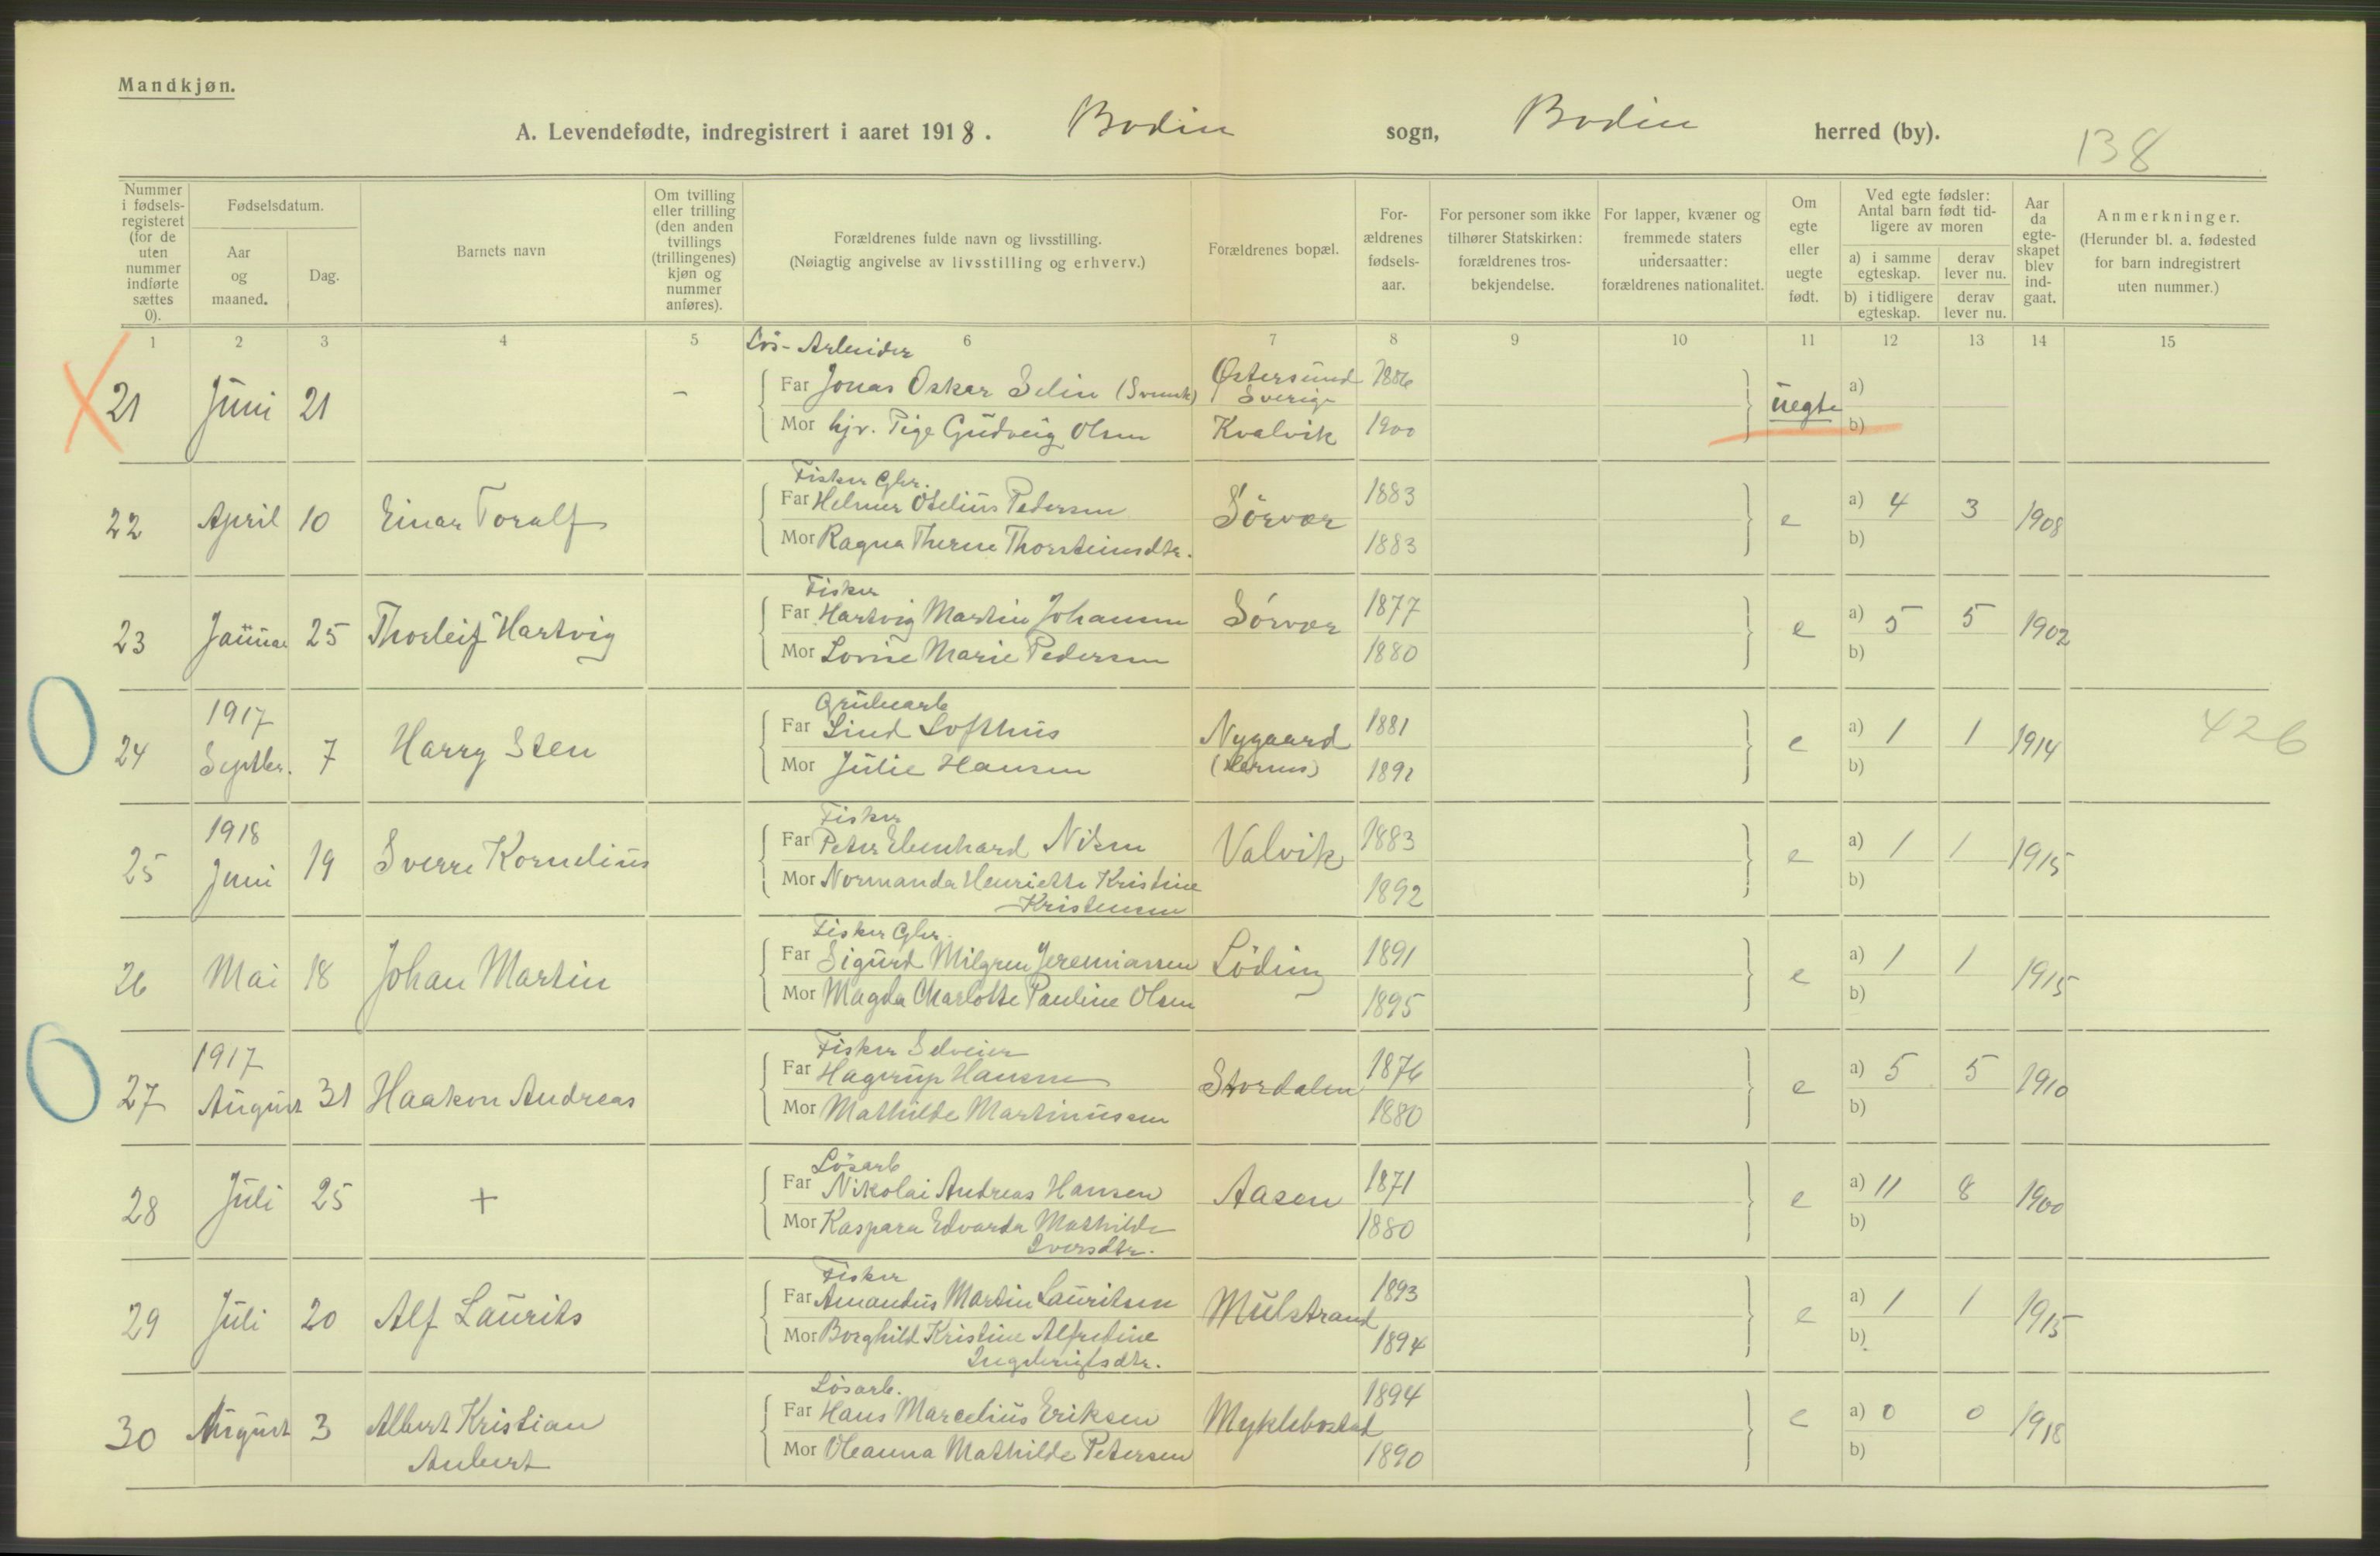 Mandkjøn.
A. Levendefødte, indregistrert i aaret 1918. Bodin sogn, Bodin herred (by).
138
Nummer i fødsels-registeret (for de uten nummer indførte sættes 0).
Fødselsdatum.
Aar og maaned.
Dag.
Barnets navn
Om tvilling eller trilling (den anden tvillings (trillingenes) kjøn og nummer anføres).
Forældrenes fulde navn og livsstilling.
(Nøiagtig angivelse av livsstilling og erhverv.)
Forældrenes bopæl.
For-ældrenes fødsels-aar.
For personer som ikke tilhører Statskirken: forældrenes tros-bekjendelse.
For lapper, kvæner og fremmede staters undersaatter: forældrenes nationalitet.
Om egte eller uegte født.
Ved egte fødsler: Antal barn født tid-ligere av moren
a) i samme egteskap.
derav lever nu.
b) i tidligere egteskap.
derav lever nu.
Aar da egte-skapet blev ind-gaat.
Anmerkninger.
(Herunder bl. a. fødested for barn indregistrert uten nummer.)
1 2 3 4 5 6 7 8 9 10 11 12 13 14 15
Løs-Arbeider
21 Juni 21 - Far Jonas Oskar Selin (Svensk) Østersund Sverige 1886 uegte a)
Mor hjv. Pige Gudveig Olsen Kvalvik 1900 b)
Fisker Gbr.
22 April 10 Einar Toralf Far Helmer Otelius Pedersen Sørvær 1883 e a) 4 3 1908
Mor Ragna Therese Thorsteinsdtr. 1883 b)
Fisker
23 Januar 25 Thorleif Hartvig Far Hartvig Martin Johansen Sørvær 1877 e a) 5 5 1902
Mor Lovise Marie Pedersen 1880 b)
1917 Grubearb
24 Septbr. 7 Harry Sten Far Lind Lofthus Nygaard 1881 e a) 1 1 1914 426
Mor Julie Hansen 1892 b)
1918 Fisker
25 Juni 19 Sverre Kornelius Far Peter Ebenhard Nilsen Valvik 1883 e a) 1 1 1915
Mor Normanda Henriette Kristine 1892 b)
Kristensen
Fisker Gbr.
26 Mai 18 Johan Martin Far Sigurd Milgren Jeremiassen Løding 1891 e a) 1 1 1915
Mor Magda Charlotte Pauline Olsen 1895 b)
1917 Fisker Selveier
27 August 31 Haakon Andreas Far Hagerup Hansen Stordalen 1876 e a) 5 5 1910
Mor Mathilde Martinussen 1880 b)
Løsarb
28 Juli 25 + Far Nikolai Andreas Hansen Aasen 1871 e a) 11 8 1900
Mor Kaspara Edvarda Mathilde 1880 b)
Iversdtr.
Fisker
29 Juli 20 Alf Laurits Far Amandus Martin Lauritsen Mulstrand 1893 e a) 1 1 1915
Mor Borghild Kristine Alfredine 1894 b)
Ingebrigtsdtr.
Løsarb.
30 August 3 Albert Kristian Far Hans Marcelius Eriksen Myklebostad 1894 e a) 0 0 1918
Anbert Mor Oleanna Mathilde Petersen 1890 b)